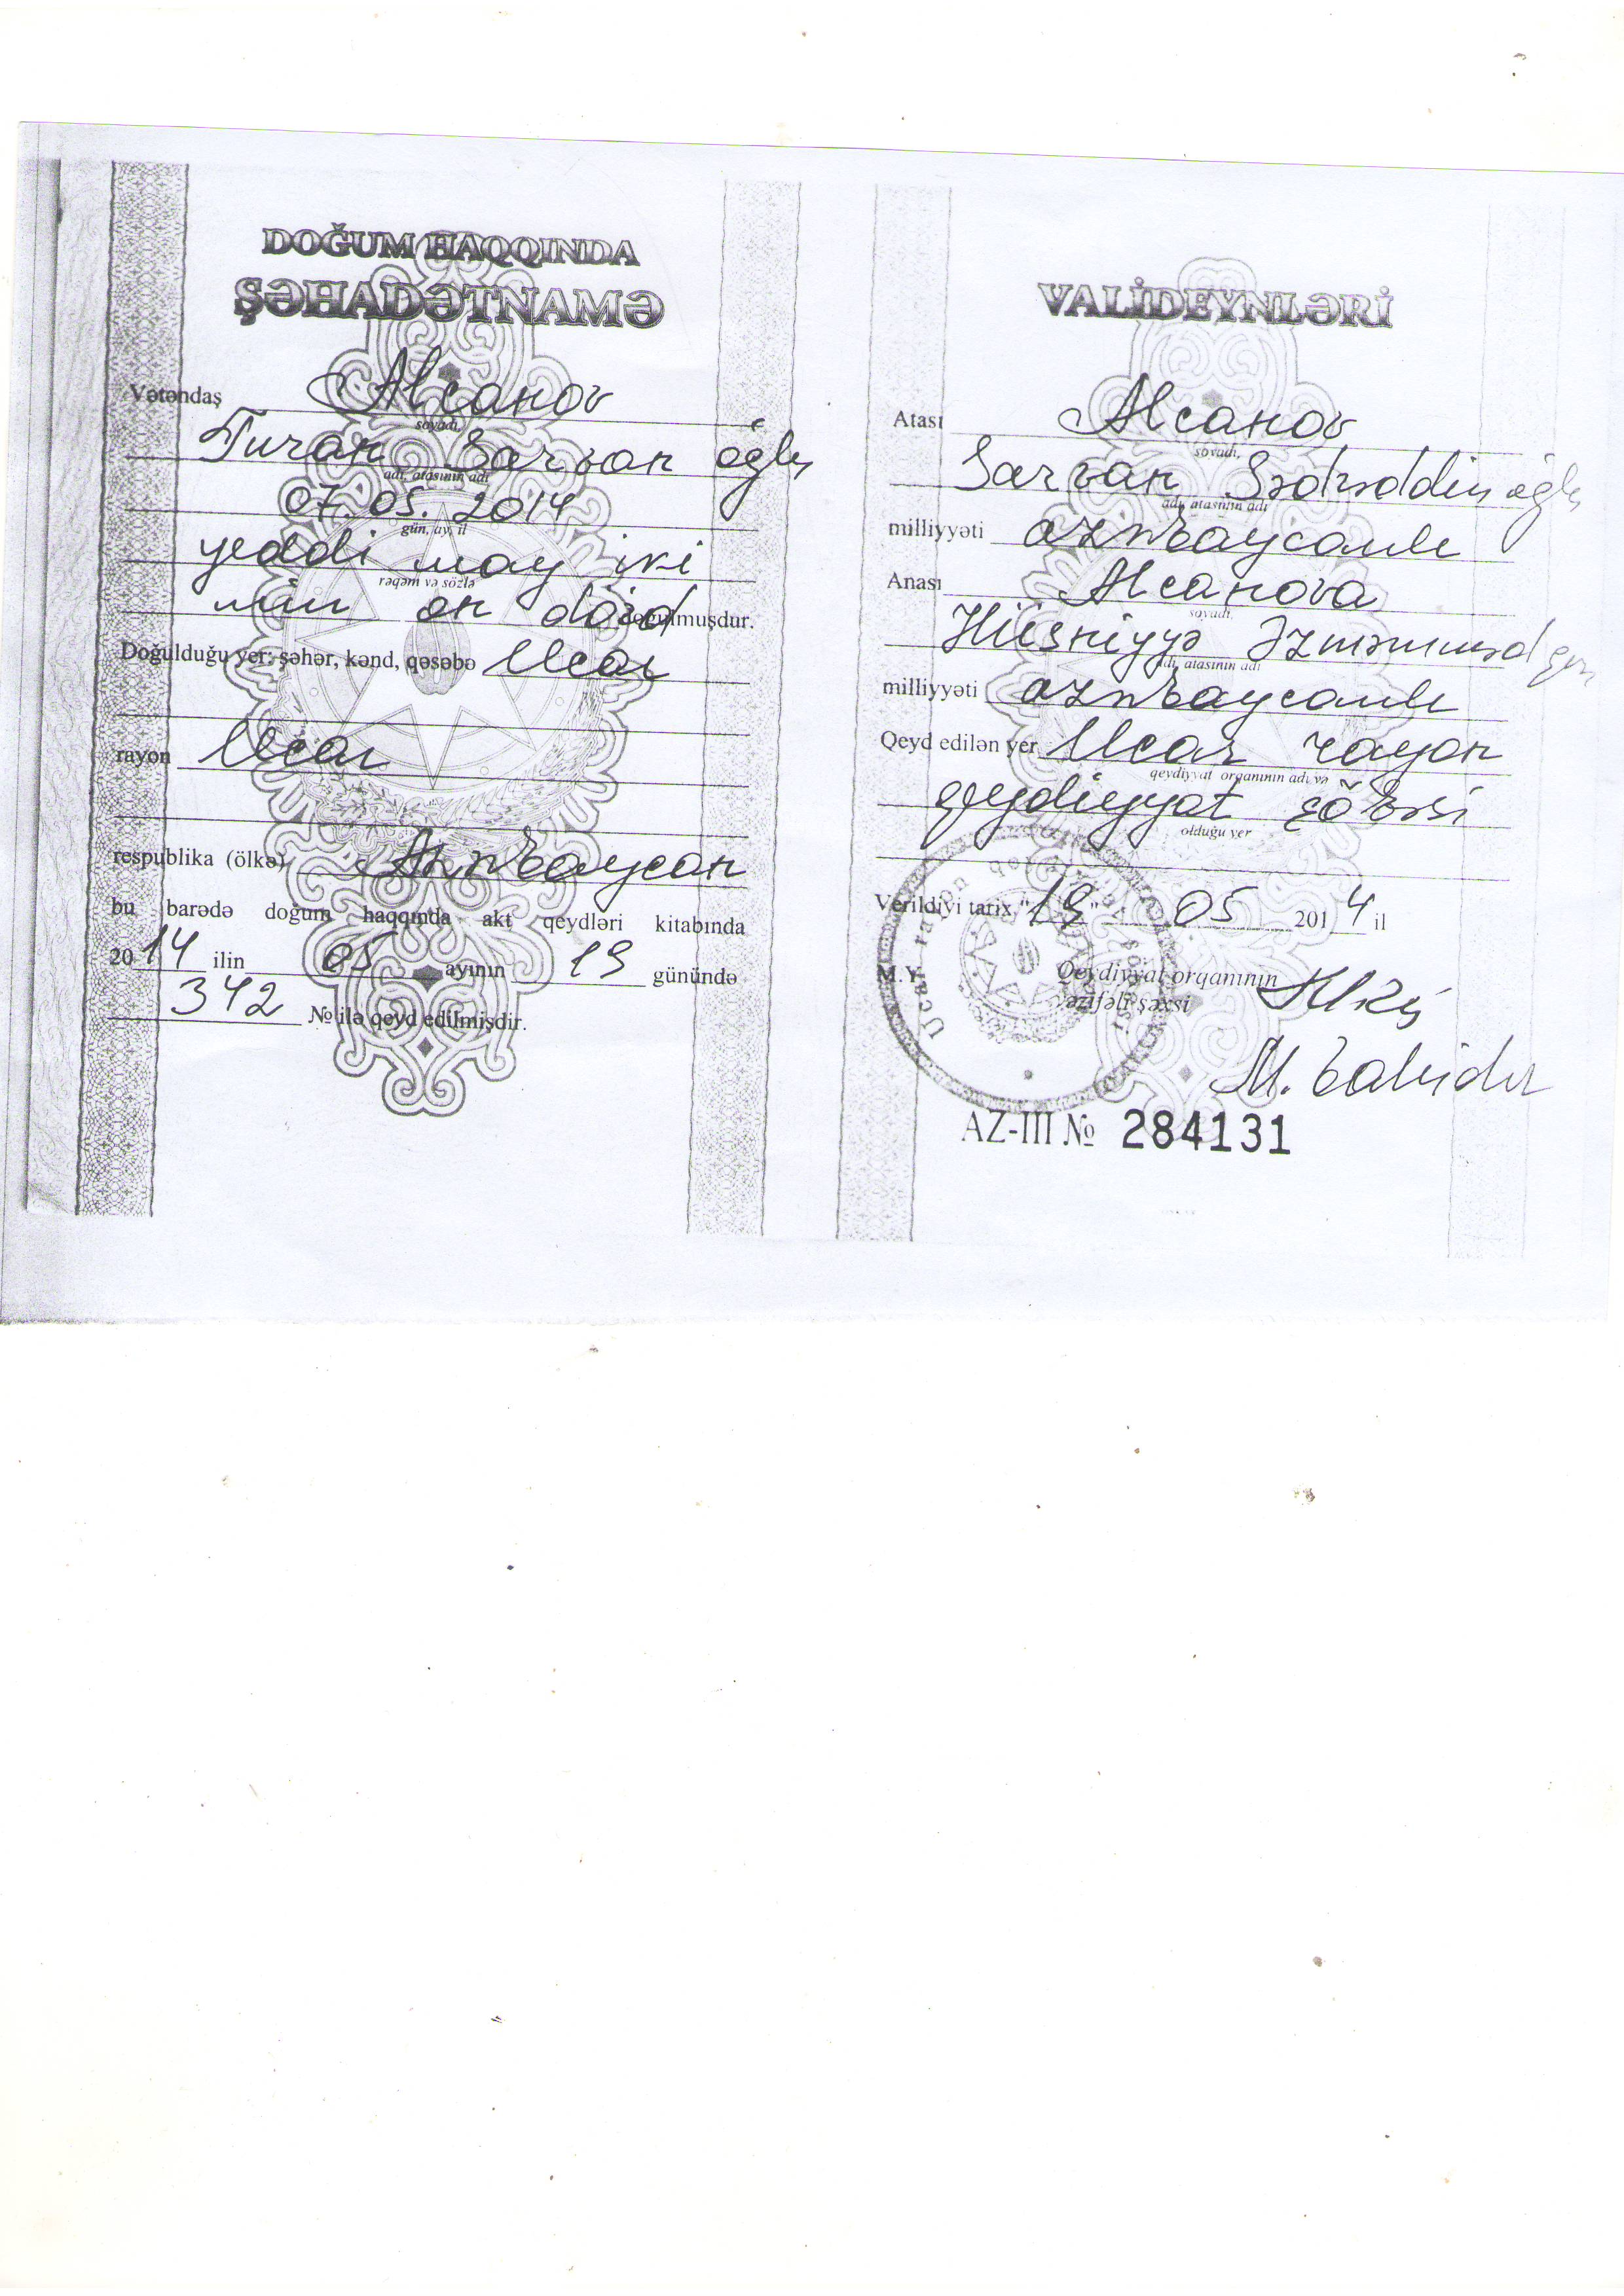 DOĞUM HAQQINDA
ŞƏHADƏTNAMƏ
Vətəndaş Alcanov
soyadı,
Turan Sarvan oğlu
adı, atasının adı
07.05.2014
gün, ay, il
yeddi may iki
rəqəm və sözlə
min on dörd doğulmuşdur.
Doğulduğu yer: şəhər, kənd, qəsəbə Ucar
rayon Ucar
respublika (ölkə) Azərbaycan
bu barədə doğum haqqında akt qeydləri kitabında
2014 ilin 05 ayının 19 günündə
342 № ilə qeyd edilmişdir.
VALİDEYNLƏRİ
Atası Alcanov
soyadı,
Sarvan Sədrəddin oğlu
adı, atasının adı
milliyyəti azərbaycanlı
Anası Alcanova
soyadı,
Hüsniyyə qızı
adı, atasının adı
milliyyəti azərbaycanlı
Qeyd edilən yer Ucar rayon
qeydiyyat orqanının adı və
qeydiyyat şöbəsi
olduğu yer
Verildiyi tarix "19" 05 2014 il
M.Y. Qeydiyyat orqanının
vəzifəli şəxsi
Ucar rayon
AZ-III № 284131